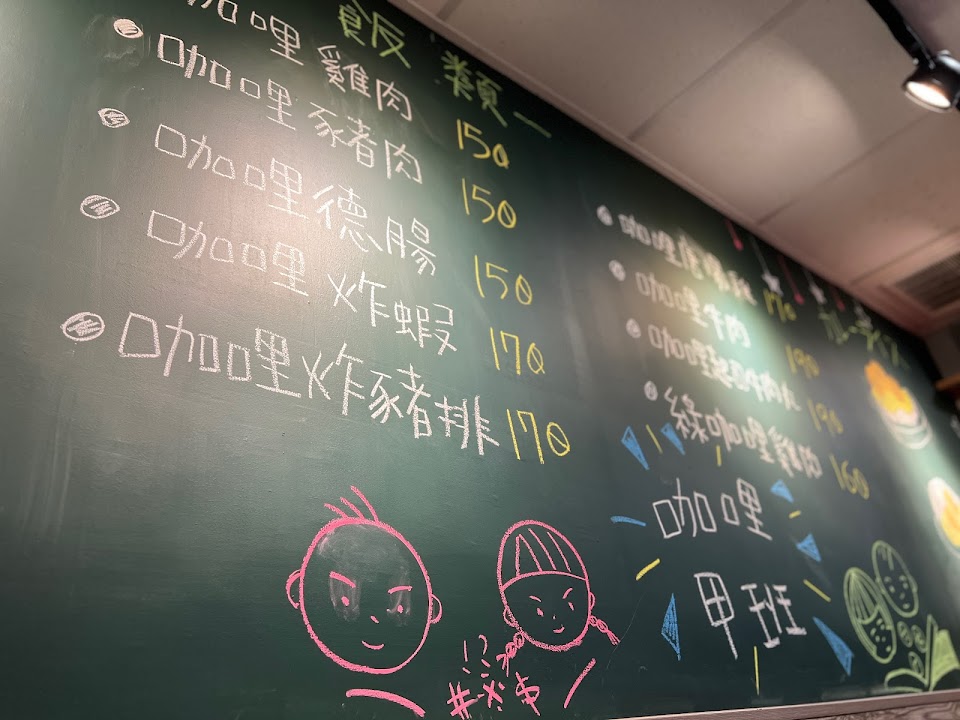 飯類
咖哩雞肉 150
咖哩豬肉 150
咖哩德腸 150
咖哩炸蝦 170
咖哩炸豬排 170
170
咖哩牛肉 190
咖哩 190
綠咖哩雞肉 160
咖哩
甲班
!?